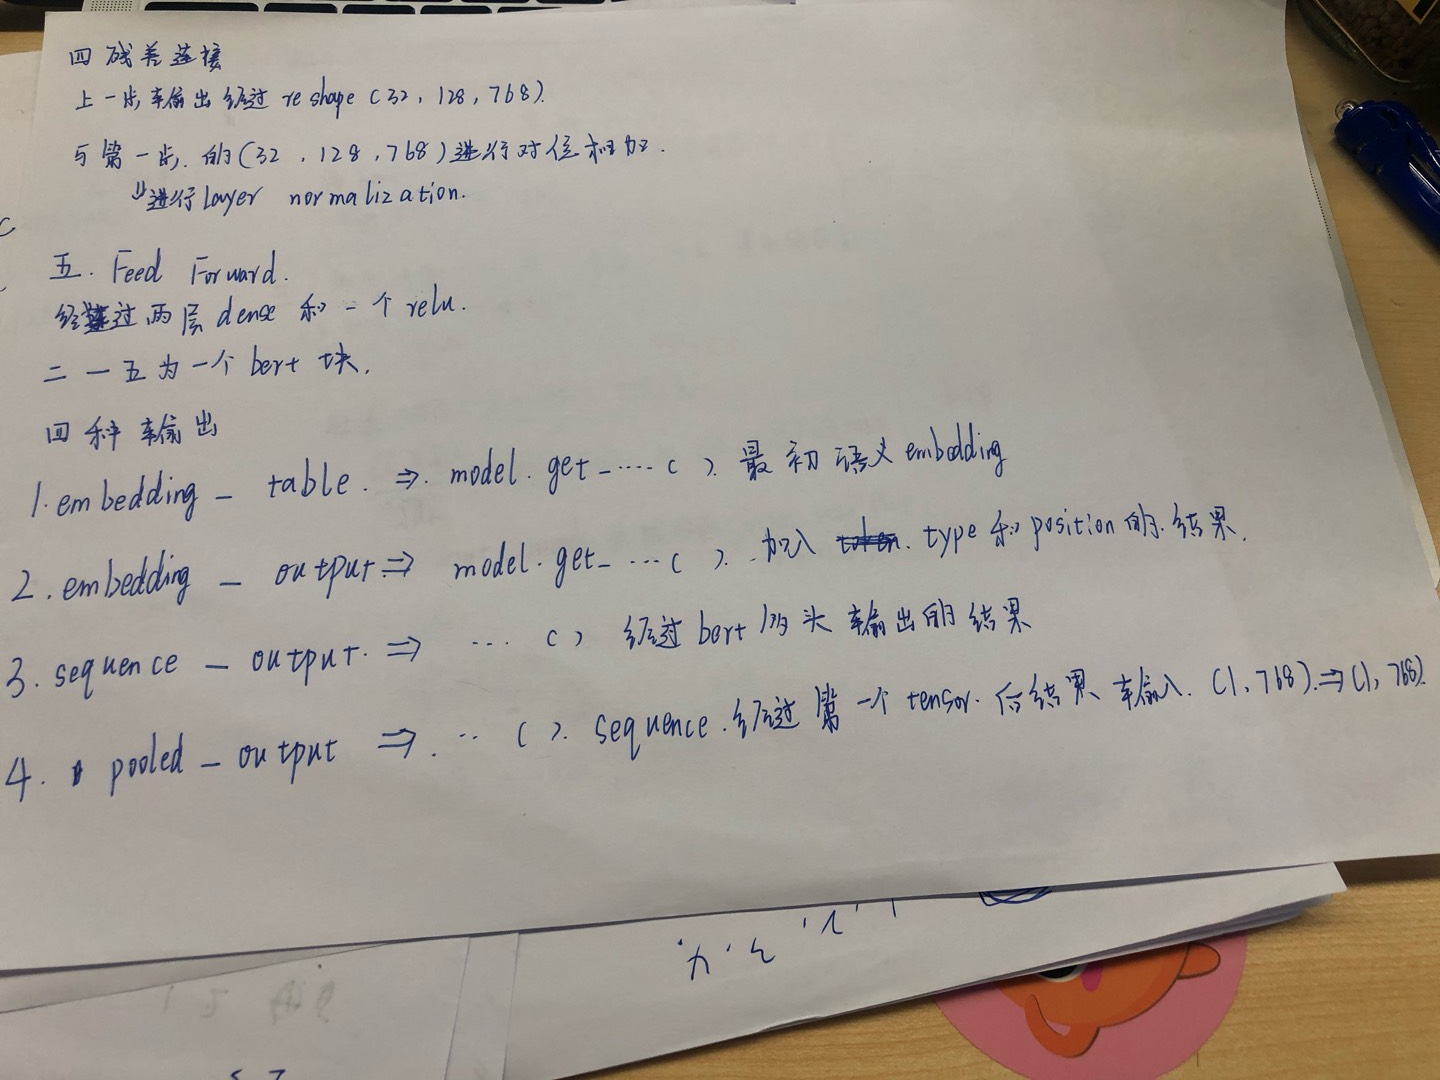 四 残差连接
上一步输出经过 reshape (32, 128, 768).
与第一步.的(32, 128, 768)进行对位相加.
进行layer normalization.
五. Feed Forward.
经过两层dense和一个relu.
二一五为一个bert块.
四种输出
1. embedding_table. ⇒ model.get_....( ). 最初语义embedding
2. embedding_output. ⇒ model.get_...( ). 加入 type和position的结果.
3. sequence_output. ⇒ ...( ) 经过bert 头输出的结果
4. pooled_output ⇒ ..( ). sequence.经过第一个tensor.后结果输入. (1, 768). ⇒ (1, 768).